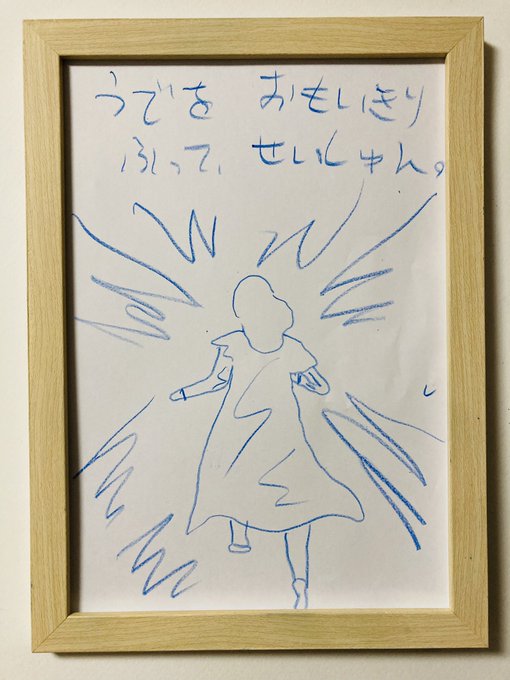 うでを おもいきり
ふって、せいしゅん。